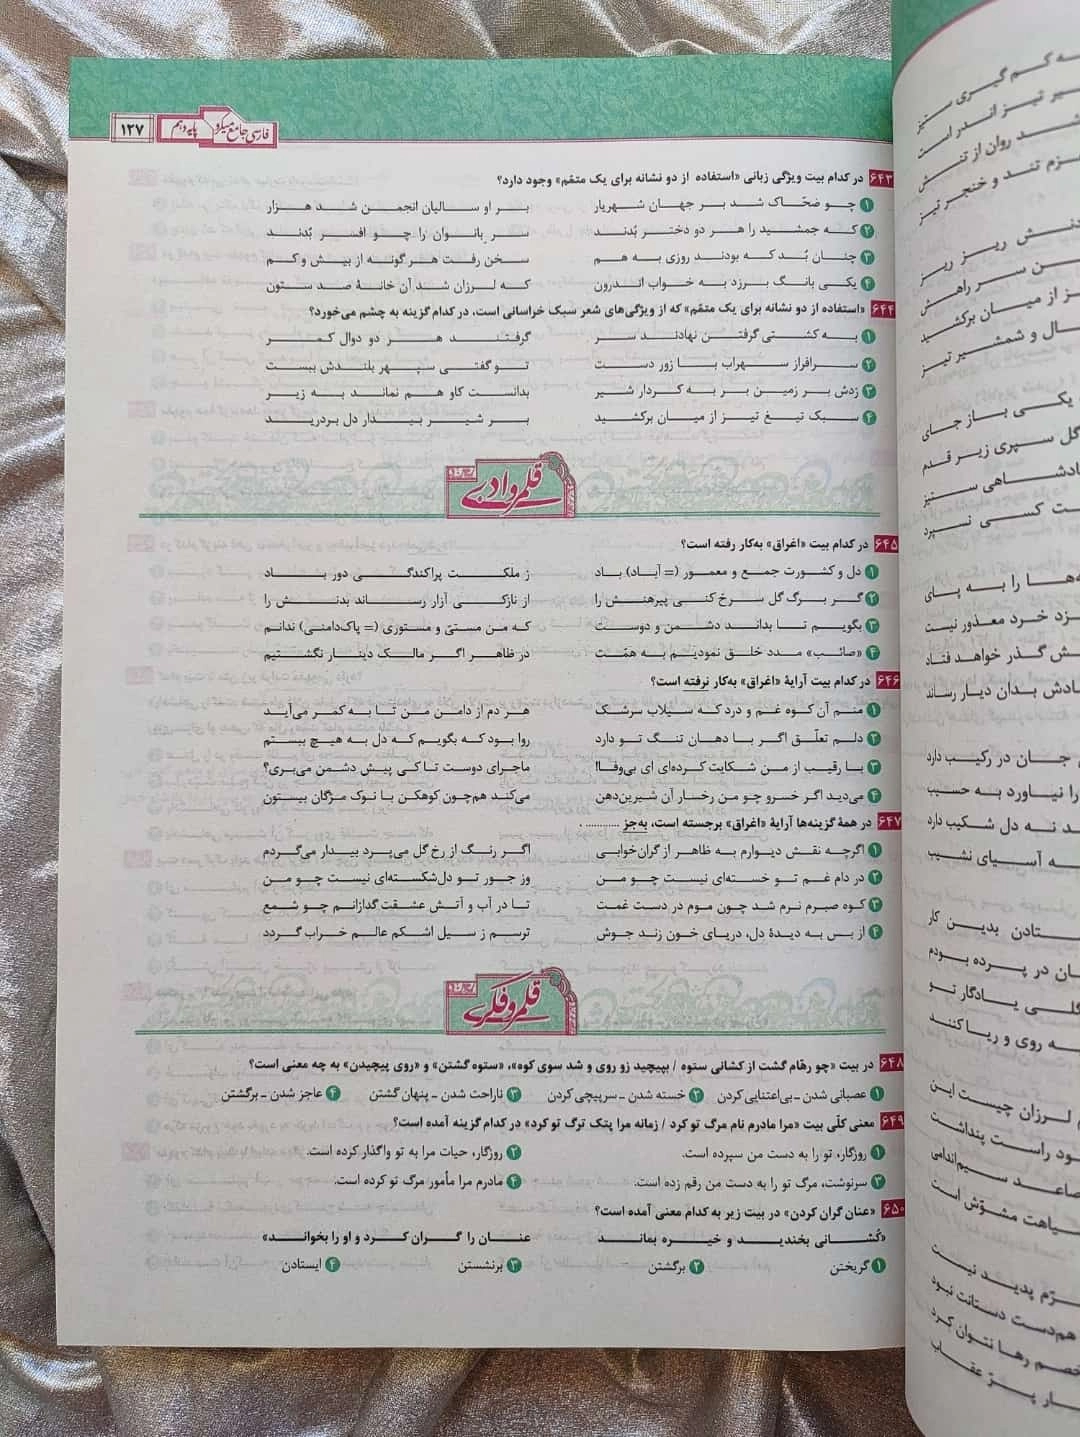 فارسی جامع میکرو پایه دهم ۱۲۷
۶۴۳ در کدام بیت ویژگی زبانی «استفاده از دو نشانه برای یک متمّم» وجود دارد؟
۱ چو ضحّاک شد بر جهان شهریار بر او سالیان انجمن شد هزار
۲ که جمشید را هر دو دختر بُدند سر بانوان را چو افسر بُدند
۳ چنان بُد که بودند روزی به هم سخن رفت هر گونه از بیش و کم
۴ یکی بانگ برزد به خواب اندرون که لرزان شد آن خانهٔ صد ستون
۶۴۴ «استفاده از دو نشانه برای یک متمّم» که از ویژگی‌های شعر سبک خراسانی است، در کدام گزینه به چشم می‌خورد؟
۱ به کشتی گرفتن نهادند سر گرفتند هر دو دوال کمر
۲ سرافراز سهراب با زور دست تو گفتی سپهر بلندش ببست
۳ زدش بر زمین بر به کردار شیر بدانست کاو هم نماند به زیر
۴ سبک تیغ تیز از میان برکشید بر شیر بیدار دل بردرید
قلمرو ادبی
۶۴۵ در کدام بیت «اغراق» به‌کار رفته است؟
۱ دل و کشورت جمع و معمور (= آباد) باد ز ملکت پراکندگی دور باد
۲ گر برگ گل سرخ کنی پیرهنش را از نازکی آزار رساند بدنش را
۳ بگویم تا بداند دشمن و دوست که من مستیّ و مستوری (= پاک‌دامنی) ندانم
۴ «صائب» مدد خلق نمودیم به همّت در ظاهر اگر مالک دینار نگشتیم
۶۴۶ در کدام بیت آرایهٔ «اغراق» به‌کار نرفته است؟
۱ منم آن کوه غم و درد که سیلاب سرشک هر دم از دامن من تا به کمر می‌آید
۲ دلم تعلّق اگر با دهان تنگ تو دارد روا بود که بگویم که دل به هیچ ببستم
۳ با رقیب از من شکایت کرده‌ای ای بی‌وفا! ماجرای دوست تا کی پیش دشمن می‌بری؟
۴ می‌دید اگر خسرو چو من رخسار آن شیرین‌دهن می‌کند هم‌چون کوهکن با نوک مژگان بیستون
۶۴۷ در همهٔ گزینه‌ها آرایهٔ «اغراق» برجسته است، به‌جز ............
۱ اگرچه نقش دیوارم به ظاهر از گران‌خوابی اگر رنگ از رخ گل می‌پرد بیدار می‌گردم
۲ در دام غم تو خسته‌ای نیست چو من وز جور تو دل‌شکسته‌ای نیست چو من
۳ کوه صبرم نرم شد چون موم در دست غمت تا در آب و آتش عشقت گدازانم چو شمع
۴ از بس به دیدهٔ دل، دریای خون زند جوش ترسم ز سیل اشکم عالم خراب گردد
قلمرو فکری
۶۴۸ در بیت «چو رهّام گشت از کشانی ستوه / بپیچید زو روی و شد سوی کوه»، «ستوه گشتن» و «روی پیچیدن» به چه معنی است؟
۱ عصبانی شدن ـ بی‌اعتنایی کردن ۲ خسته شدن ـ سرپیچی کردن ۳ ناراحت شدن ـ پنهان گشتن ۴ عاجز شدن ـ برگشتن
۶۴۹ معنی کلّی بیت «مرا مادرم نام مرگ تو کرد / زمانه مرا پتک ترگ تو کرد» در کدام گزینه آمده است؟
۱ روزگار، تو را به دست من سپرده است. ۲ روزگار، حیات مرا به تو واگذار کرده است.
۳ سرنوشت، مرگ تو را به دست من رقم زده است. ۴ مادرم مرا مأمور مرگ تو کرده است.
۶۵۰ «عنان گران کردن» در بیت زیر به کدام معنی آمده است؟
«کُشانی بخندید و خیره بماند عنان را گران کرد و او را بخواند»
۱ گریختن ۲ برگشتن ۳ برنشستن ۴ ایستادن